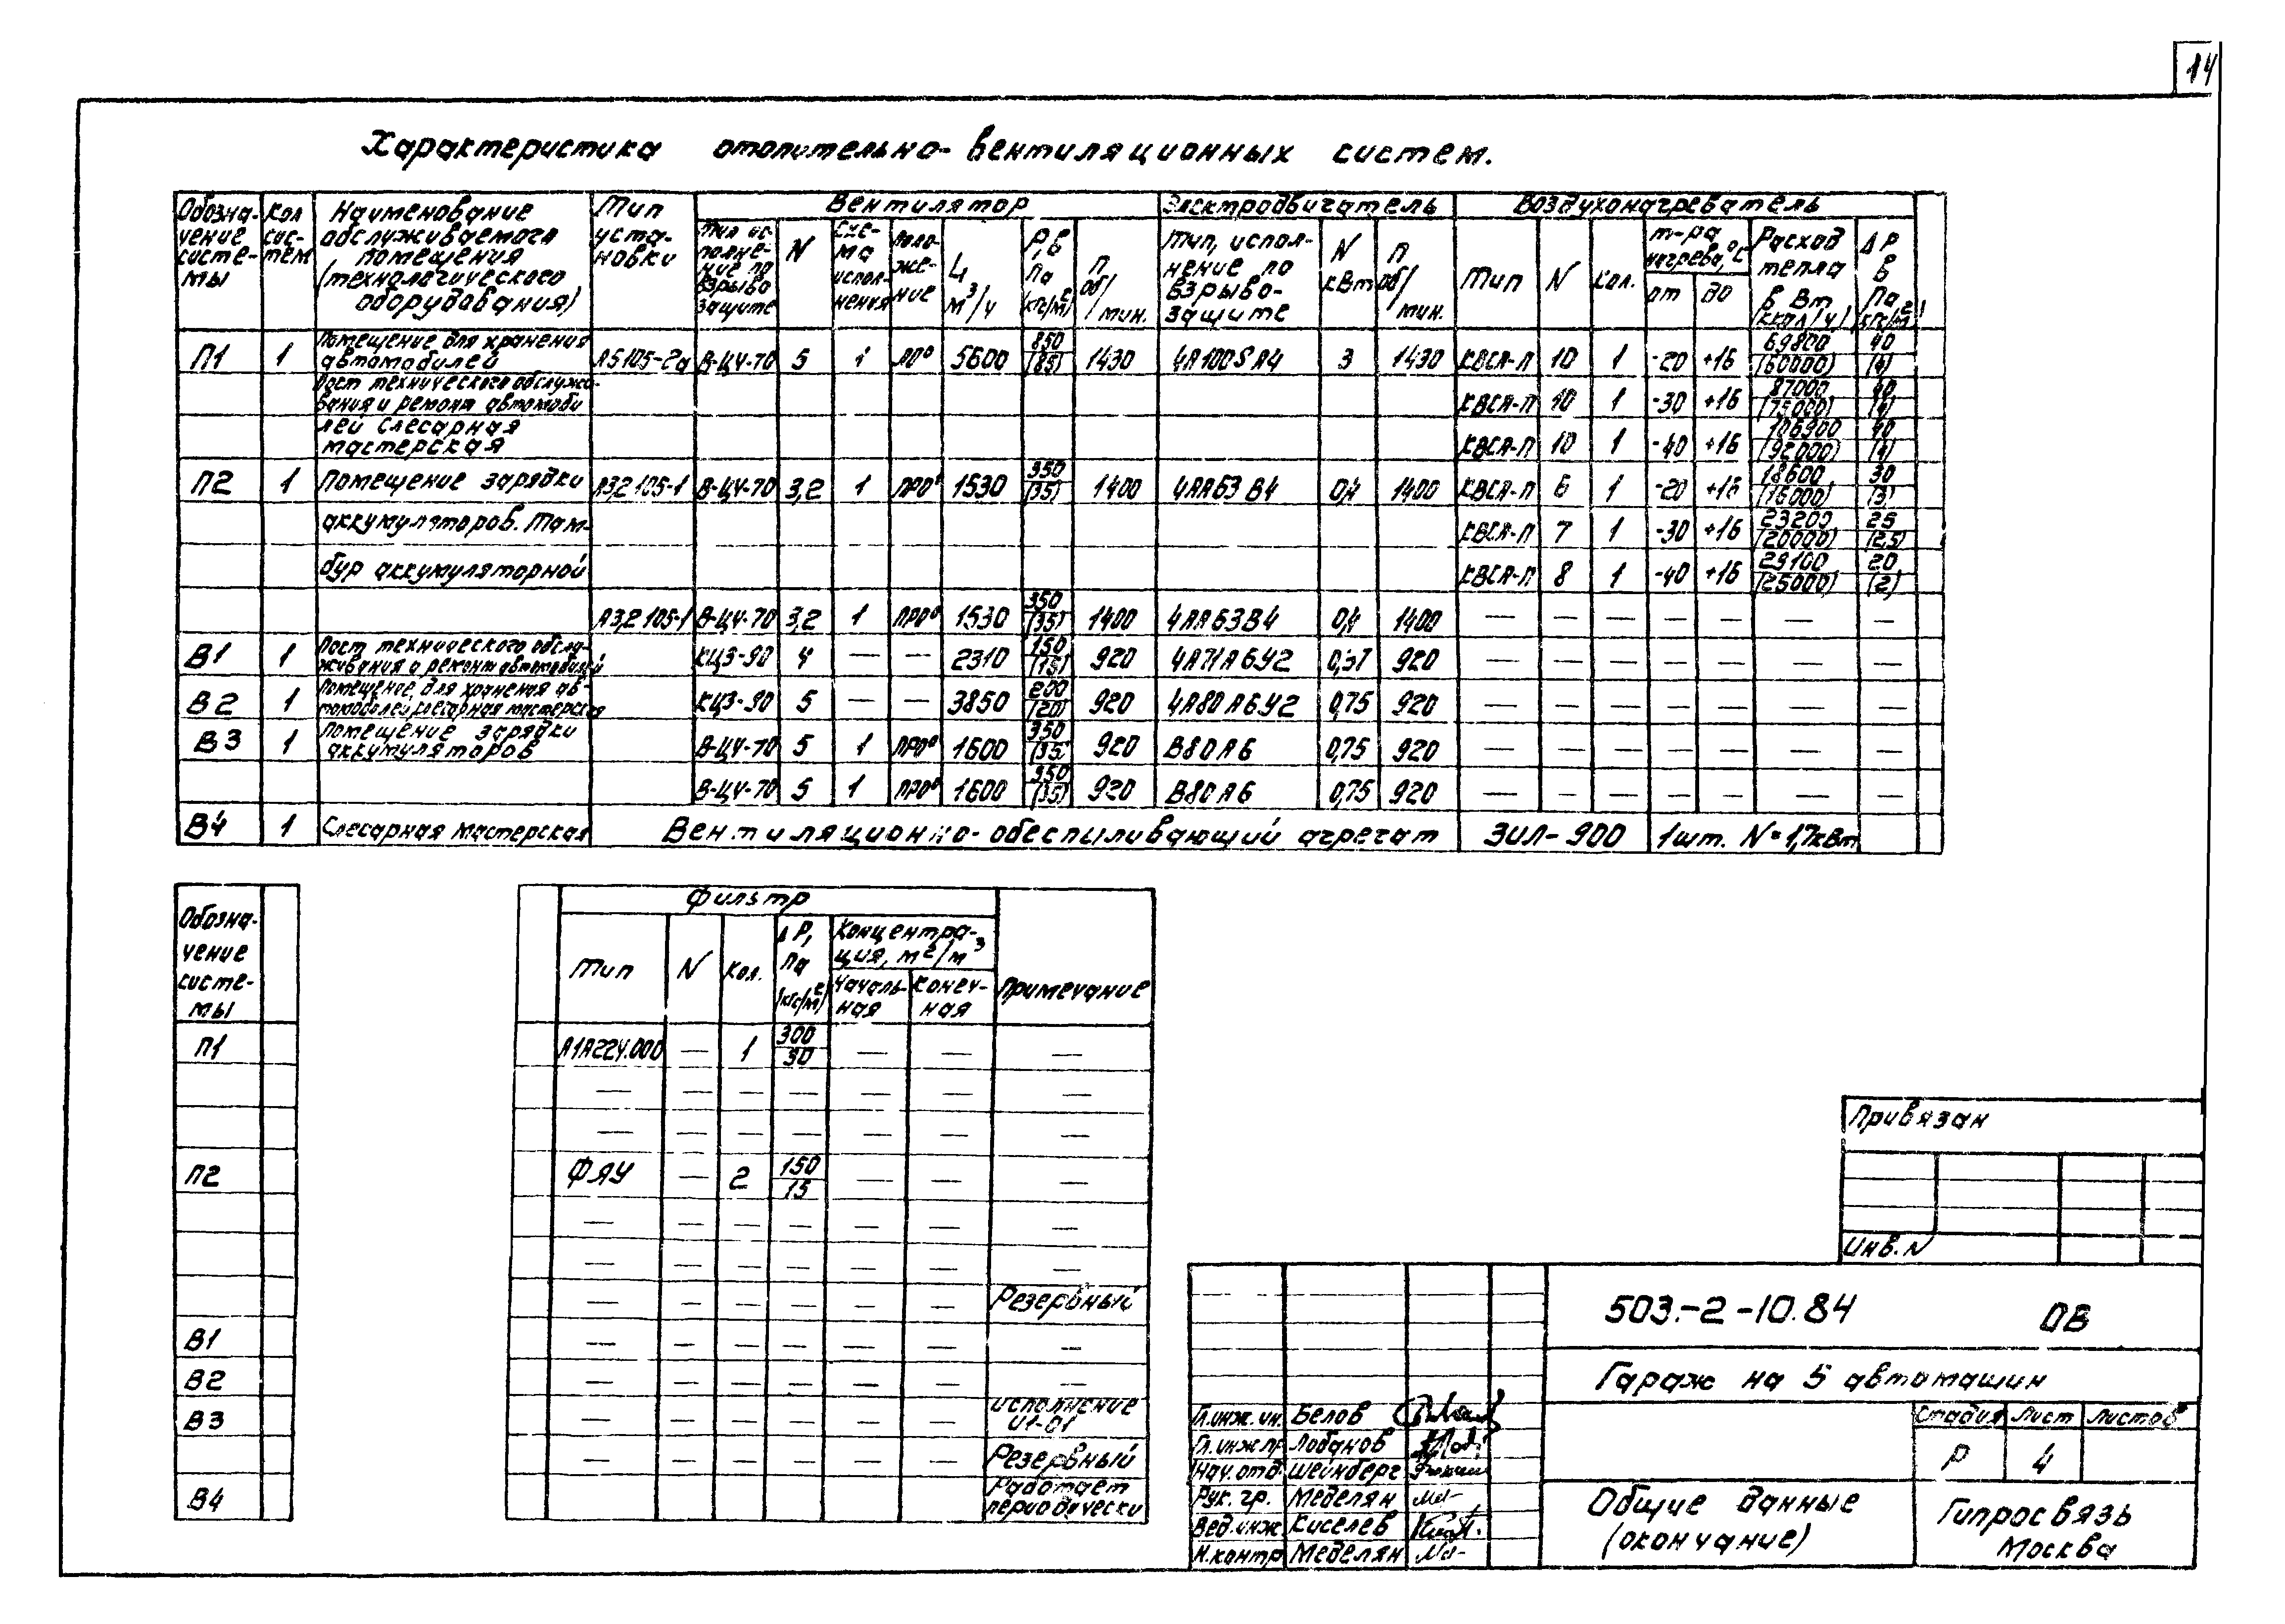 14
Характеристика отопительно-вентиляционных систем.
Обозна-чение систе-мы | Кол сис-тем | Наименование обслуживаемого помещения (технологического оборудования) | Тип уста-новки | Вентилятор | Электродвигатель | Воздухонагреватель
Тип ис-полне-ние по взрыво защите | N | Схе-ма испол-нения | Поло-же-ние | L, м³/ч | Р, в Па (кгс/м²) | п об/мин. | Тип, испол-нение по взрыво-защите | N кВт | п об/мин. | Тип | N | Кол. | т-ра нагрева, °С от | до | Расход тепла в Вт (ккал/ч) | ΔР в Па кгс/м²
П1 | 1 | Помещение для хранения автомобилей | А5105-2а | В-Ц4-70 | 5 | 1 | ЛП0 | 5600 | 850 (85) | 1430 | 4А100SА4 | 3 | 1430 | КВСА-П | 10 | 1 | -20 | +16 | 69800 (60000) | 40 (4)
Пост технического обслужи-вания и ремонт автомоби | КВСА-П | 10 | 1 | -30 | +16 | 87000 (75000) | 40 (4)
лей Слесарная мастерская | КВСА-П | 10 | 1 | -40 | +16 | 106900 (92000) | 40 (4)
П2 | 1 | Помещение зарядки | А3,2 105-1 | В-Ц4-70 | 3,2 | 1 | ПР0° | 1530 | 350 (35) | 1400 | 4АА63В4 | 0,4 | 1400 | КВСА-П | 6 | 1 | -20 | +16 | 18600 (16000) | 30 (3)
аккумуляторов. Там- | КВСА-П | 7 | 1 | -30 | +16 | 23200 (20000) | 25 (2,5)
бур аккумуляторной | КВСА-П | 8 | 1 | -40 | +16 | 29100 (25000) | 20 (2)
А3,2 105-1 | В-Ц4-70 | 3,2 | 1 | ПР0° | 1530 | 350 (35) | 1400 | 4АА63В4 | 0,4 | 1400 | — | — | — | — | — | — | —
В1 | 1 | Пост технического обслу-живания и ремонт автомобилей | КЦ3-90 | 4 | — | — | 2310 | 150 (15) | 920 | 4А71А6У2 | 0,37 | 920 | — | — | — | — | — | — | —
В2 | 1 | Помещение для хранения ав-томобилей, слесарная мастерская | КЦ3-90 | 5 | — | — | 3850 | 200 (20) | 920 | 4А80А6У2 | 0,75 | 920 | — | — | — | — | — | — | —
В3 | 1 | Помещение зарядки аккумуляторов | В-Ц4-70 | 5 | 1 | ПР0° | 1600 | 350 (35) | 920 | В80А6 | 0,75 | 920 | — | — | — | — | — | — | —
В-Ц4-70 | 5 | 1 | ПР0° | 1600 | 350 (35) | 920 | В80А6 | 0,75 | 920 | — | — | — | — | — | — | —
В4 | 1 | Слесарная мастерская | Вентиляционно-обеспыливающий агрегат | ЗИЛ-900 | 1шт. N=1,7кВт
Обозна-чение систе-мы | Фильтр | Примечание
Тип | N | Кол. | ΔР, Па (кгс/м²) | Концентра-ция, м²/м³ Началь-ная | Конеч-ная
П1 | А1А224.000 | — | 1 | 300 30 | — | — | —
— | — | — | — | — | — | —
— | — | — | — | — | — | —
П2 | ФЯУ | — | 2 | 150 15 | — | — | —
— | — | — | — | — | — | —
— | — | — | — | — | — | —
— | — | — | — | — | — | Резервный
В1 | — | — | — | — | — | — | —
В2 | — | — | — | — | — | — | —
В3 | — | — | — | — | — | — | исполнение И1-01
— | — | — | — | — | — | Резервный
В4 | Работает периодически
Привязан
Инв. N
503.-2-10.84 ОВ
Гараж на 5 автомашин
Гл.инж.ин. Белов
Гл.инж.пр. Лобанов
Нач.отд. Шейнберг
Рук. гр. Меделян
Вед.инж Киселев
Н.контр Меделян
Стадия Лист Листов
Р 4
Общие данные
(окончание)
Гипросвязь
Москва